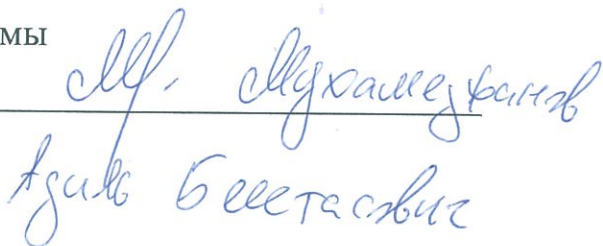 мы
М. Мухамеджанов
Адиль Бектасович